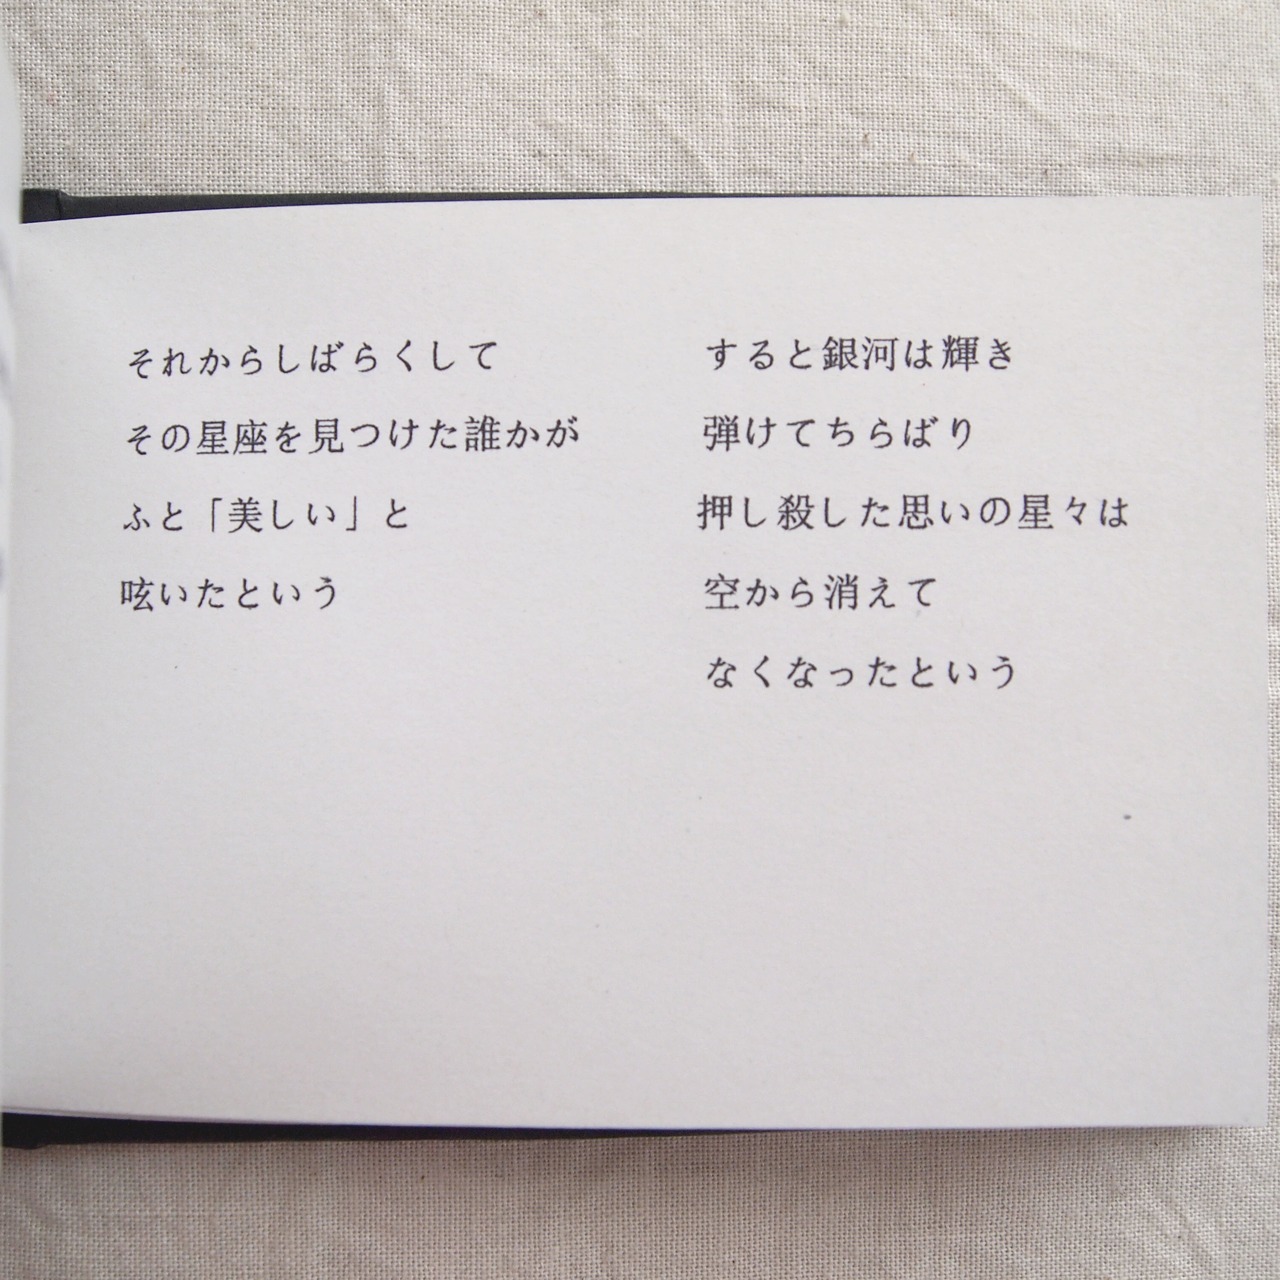 それからしばらくして
その星座を見つけた誰かが
ふと「美しい」と
呟いたという
すると銀河は輝き
弾けてちらばり
押し殺した思いの星々は
空から消えて
なくなったという